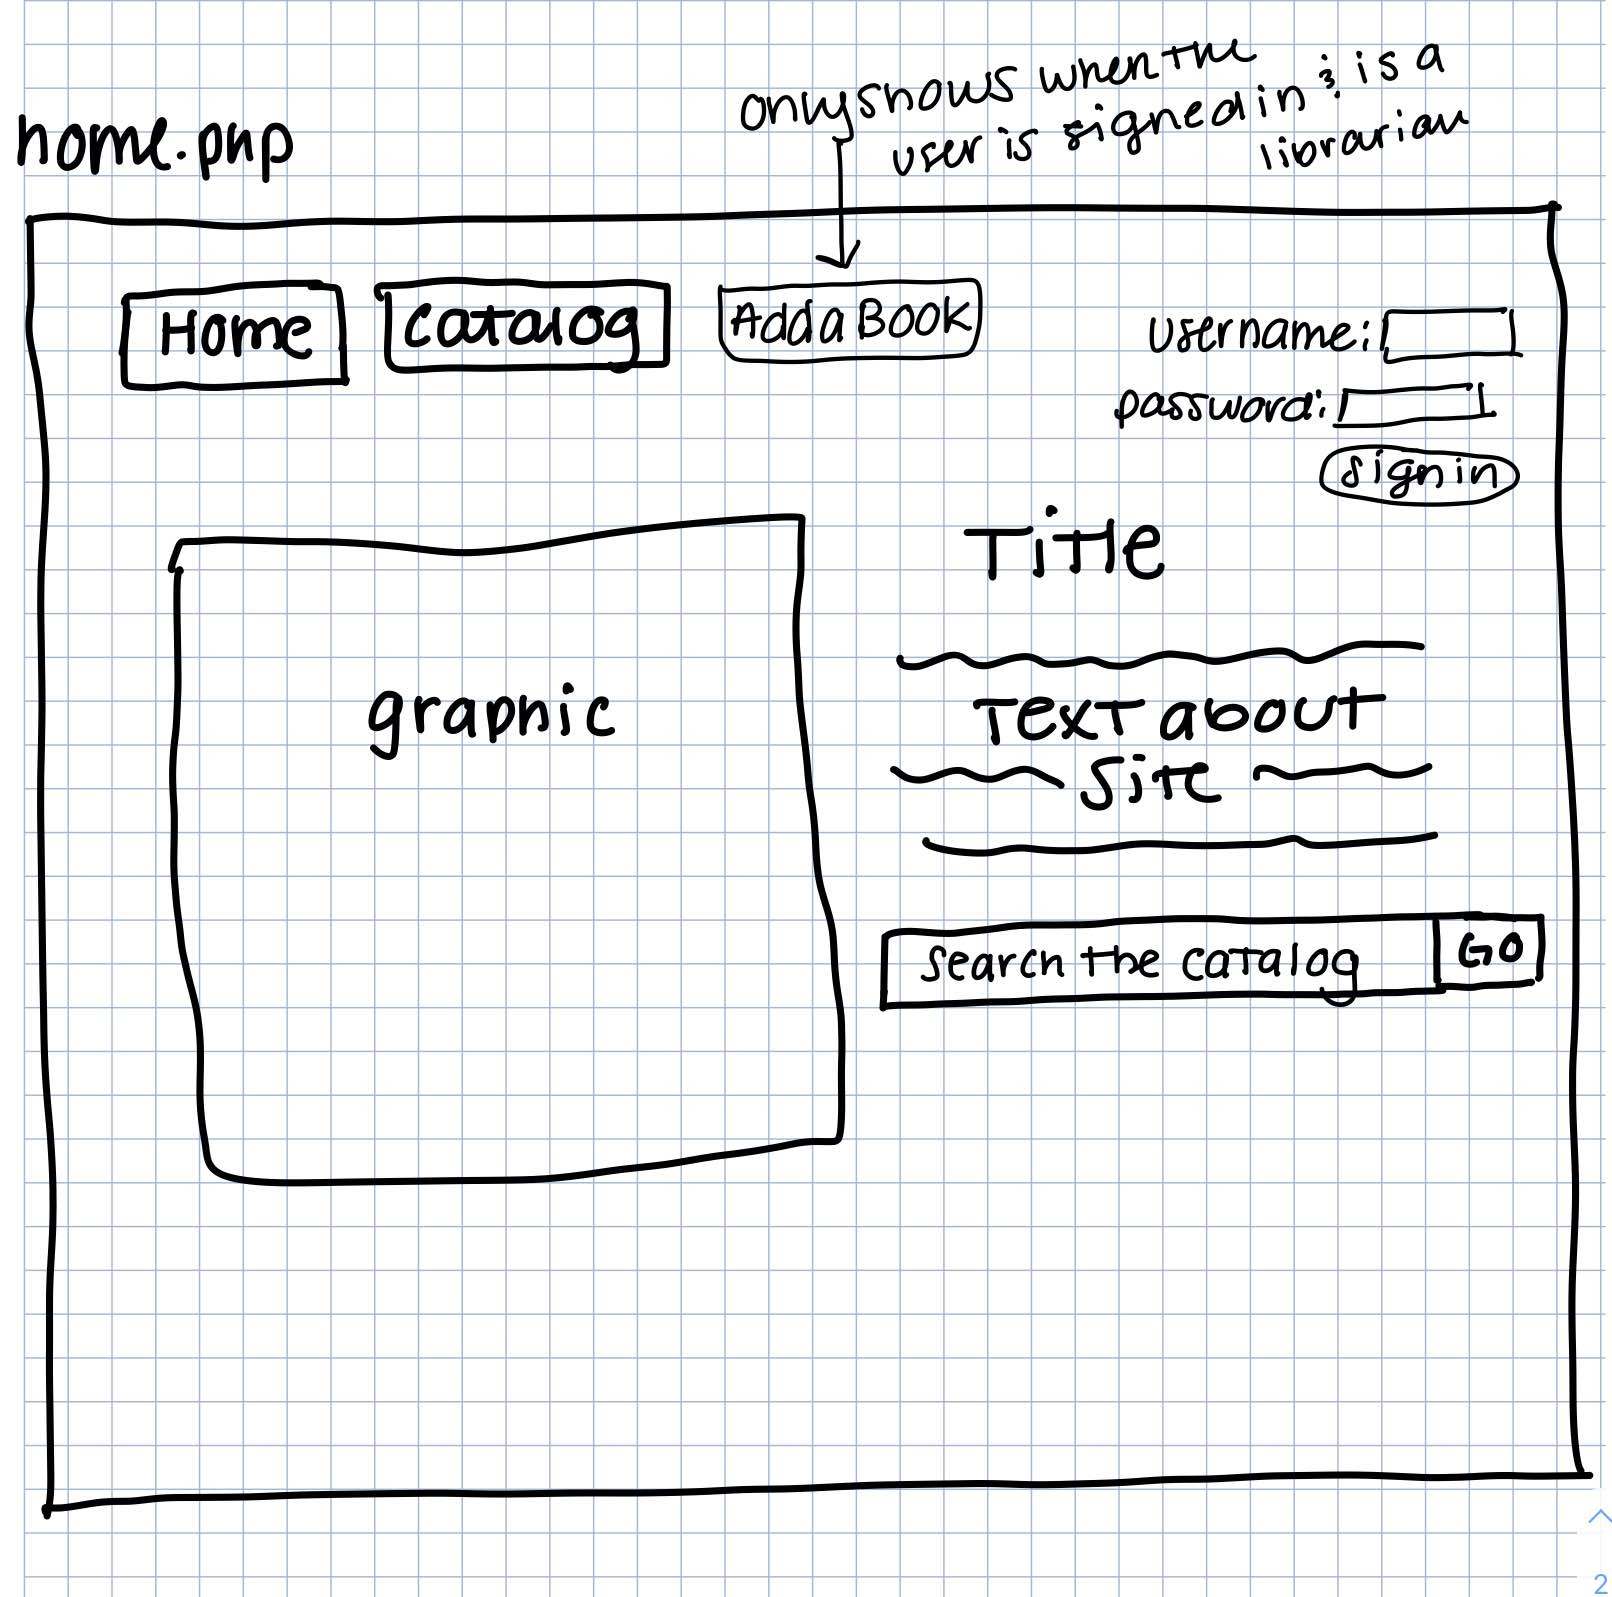 only shows when the
user is signed in & is a
librarian
home.php
Home
catalog
Add a Book
username:
password:
sign in
Title
graphic
Text about
Site
search the catalog
GO
2